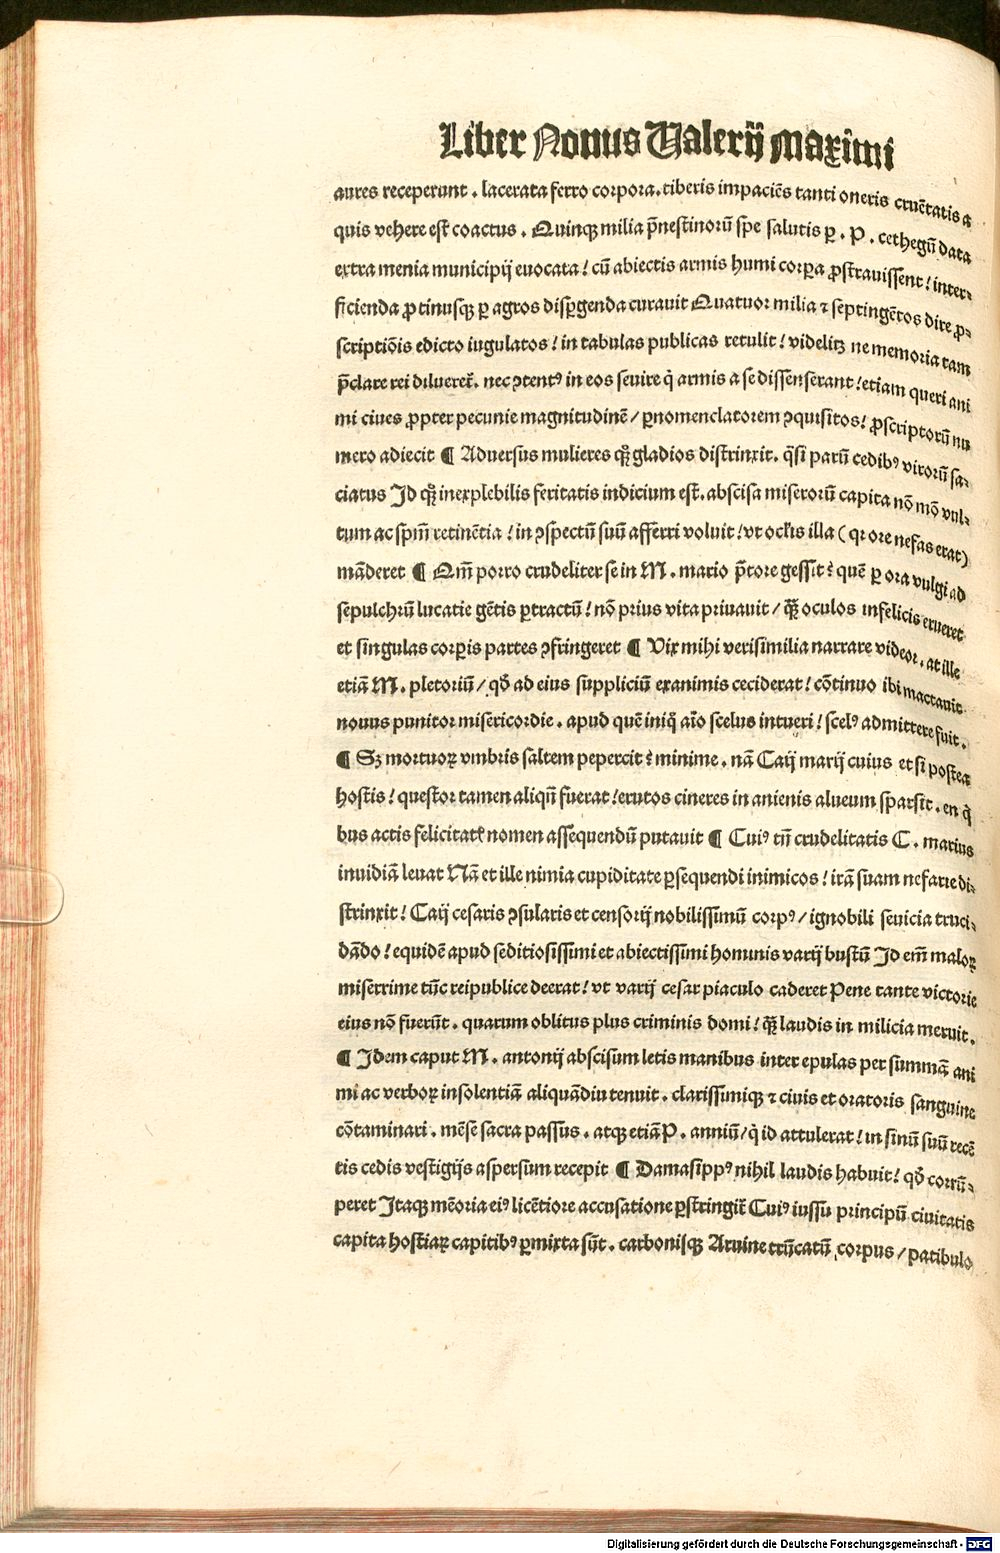 Liber Nonus Valerij Maximi
aures receperunt . lacerata ferro corpora . tiberis impaciēs tanti oneris cruētatis aquis
quis vehere est coactus . Quinqꝫ milia p̄nestinoꝝ spe salutis ꝑ . P . cethegū data
extra menia municipij euocata ! cū abiectis armis humi corꝑa ꝓstrauissent ! inter⸗
ficienda ꝓtinusqꝫ ꝑ agros disꝑgenda curauit Quatuor milia ⁊ septingētos dire ꝓ⸗
scriptiōis edicto iugulatos ! in tabulas publicas retulit ! videlitꝫ ne memoria tam
p̄clare rei dilueret̄ . nec ꝯtentꝰ in eos seuire q̇ armis a se dissenserant ! etiam queri ani
mi ciues ꝓpter pecunie magnitudinē / ꝑnomenclatorem ꝯquisitos ! ꝓscriptorū nu
mero adiecit ¶ Aduersus mulieres qꝫ gladios distrinxit . q̄si parū cedibꝰ virorū sa⸗
ciatus Id qꝫ inexplebilis feritatis indicium est . abscisa miserorū capita nō mō vul⸗
tum ac spm̄ retinētia ! in ꝯspectū suū afferri voluit ! vt oclꝭs illa ( qꝛ ore nefas erat )
māderet ¶ Qm̄ porro crudeliter se in M . mario p̄tore gessit : quē ꝑ ora vulgi ad
sepulchrū lucatie gētis ꝑtractū ! nō prius vita priuauit / q̄ꝫ oculos infelicis erueret
et singulas corꝑis partes ꝯfringeret ¶ Vix mihi verisimilia narrare videor . at ille
etiā M . pletoriū / qđ ad eius suppliciū exanimis ceciderat ! cōtinuo ibi mactauit
nouus punitor misericordie . apud quē iniq̇ aīo scelus intueri ! scelꝰ admittere fuit .
¶ Sꝫ mortuoꝝ vmbris saltem pepercit : minime . nā Caij marij cuius et si postea
hostis ! questor tamen aliqn̄ fuerat ! erutos cineres in anienis alueum sparsit . en q̇
bus actis felicitatꝭ nomen assequendū putauit ¶ Cuiꝰ tn̄ crudelitatis C . marius
inuidiā leuat Nā et ille nimia cupiditate ꝑsequendi inimicos ! irā suam nefarie di⸗
strinxit ! Caij cesaris ꝯsularis et censorij nobilissimū corpꝰ / ignobili seuicia truci⸗
dādo ! equidē apud seditiosissimi et abiectissimi hominis varij bustū Id em̄ maloꝝ
miserrime tūc reipublice deerat ! vt varij cesar piaculo caderet Pene tante victorie
eius nō fuerūt . quarum oblitus plus criminis domi ! q̄ꝫ laudis in milicia meruit .
¶ Idem caput M . antonij abscisum letis manibus inter epulas per summā ani
mi ac verboꝝ insolentiā aliquādiu tenuit . clarissimiqꝫ ⁊ ciuis et oratoris sanguine
cōtaminari . mēse sacra passus . atqꝫ etiā P . anniū / q̇ id attulerat ! in sinū suū recē
tis cedis vestigijs aspersum recepit ¶ Damasippꝰ nihil laudis habuit ! qđ corrū⸗
peret Itaqꝫ mēoria eiꝰ licētiore accusatione ꝑstringit̄ Cuiꝰ iussu principū ciuitatis
capita hostiaꝝ capitibꝰ ꝑmixta sūt . carbonisqꝫ Aruine trūcatū corpus / patibulo
Digitalisierung gefördert durch die Deutsche Forschungsgemeinschaft - DFG